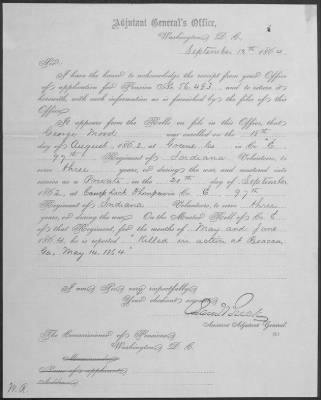 Adjutant General's Office,
Washington, D. C.
September 13th, 1864.
Sir:
I have the honor to acknowledge the receipt from your Office
of application for Pension No. 56.493, and to return it
herewith, with such information as is furnished by the files of this
Office.
It appears from the Rolls on file in this Office, that
George Wood was enrolled on the 18th
day of August, 1862, at Greene Co. in Co. E
97th Regiment of Indiana Volunteers, to
serve three years, or during the war, and mustered into
service as a Private on the 20th day of September
1862, at Camp Dick Thompson in Co. E 97th
Regiment of Indiana Volunteers, to serve three
years, or during the war. On the Muster Roll of Co. E
of that Regiment, for the months of May and June
1864, he is reported "Killed in action at Resaca
Ga, May 14. 1864."
I am, Sir, very respectfully,
Your obedient servant,
Assistant Adjutant General.
The Commissioner of Pensions,
Washington, D. C.